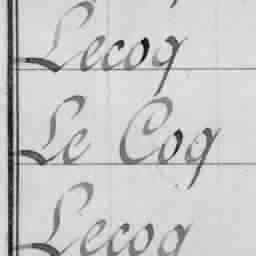 Lecoq
Le Coq
Lecoq